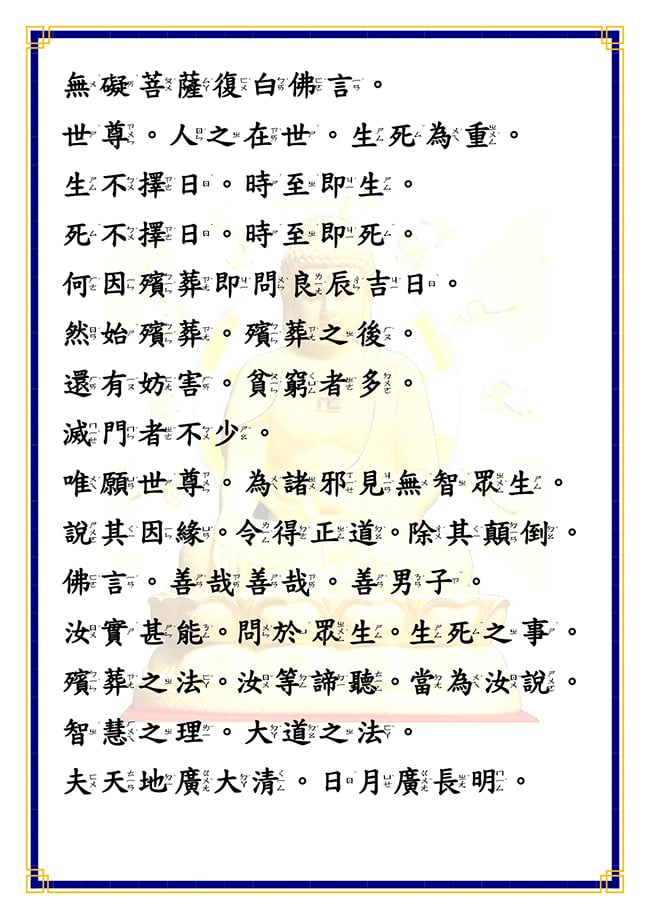 無礙菩薩復白佛言。
世尊。人之在世。生死為重。
生不擇日。時至即生。
死不擇日。時至即死。
何因殯葬即問良辰吉日。
然始殯葬。殯葬之後。
還有妨害。貧窮者多。
滅門者不少。
唯願世尊。為諸邪見無智眾生。
說其因緣。令得正道。除其顛倒。
佛言。善哉善哉。善男子。
汝實甚能。問於眾生。生死之事。
殯葬之法。汝等諦聽。當為汝說。
智慧之理。大道之法。
夫天地廣大清。日月廣長明。